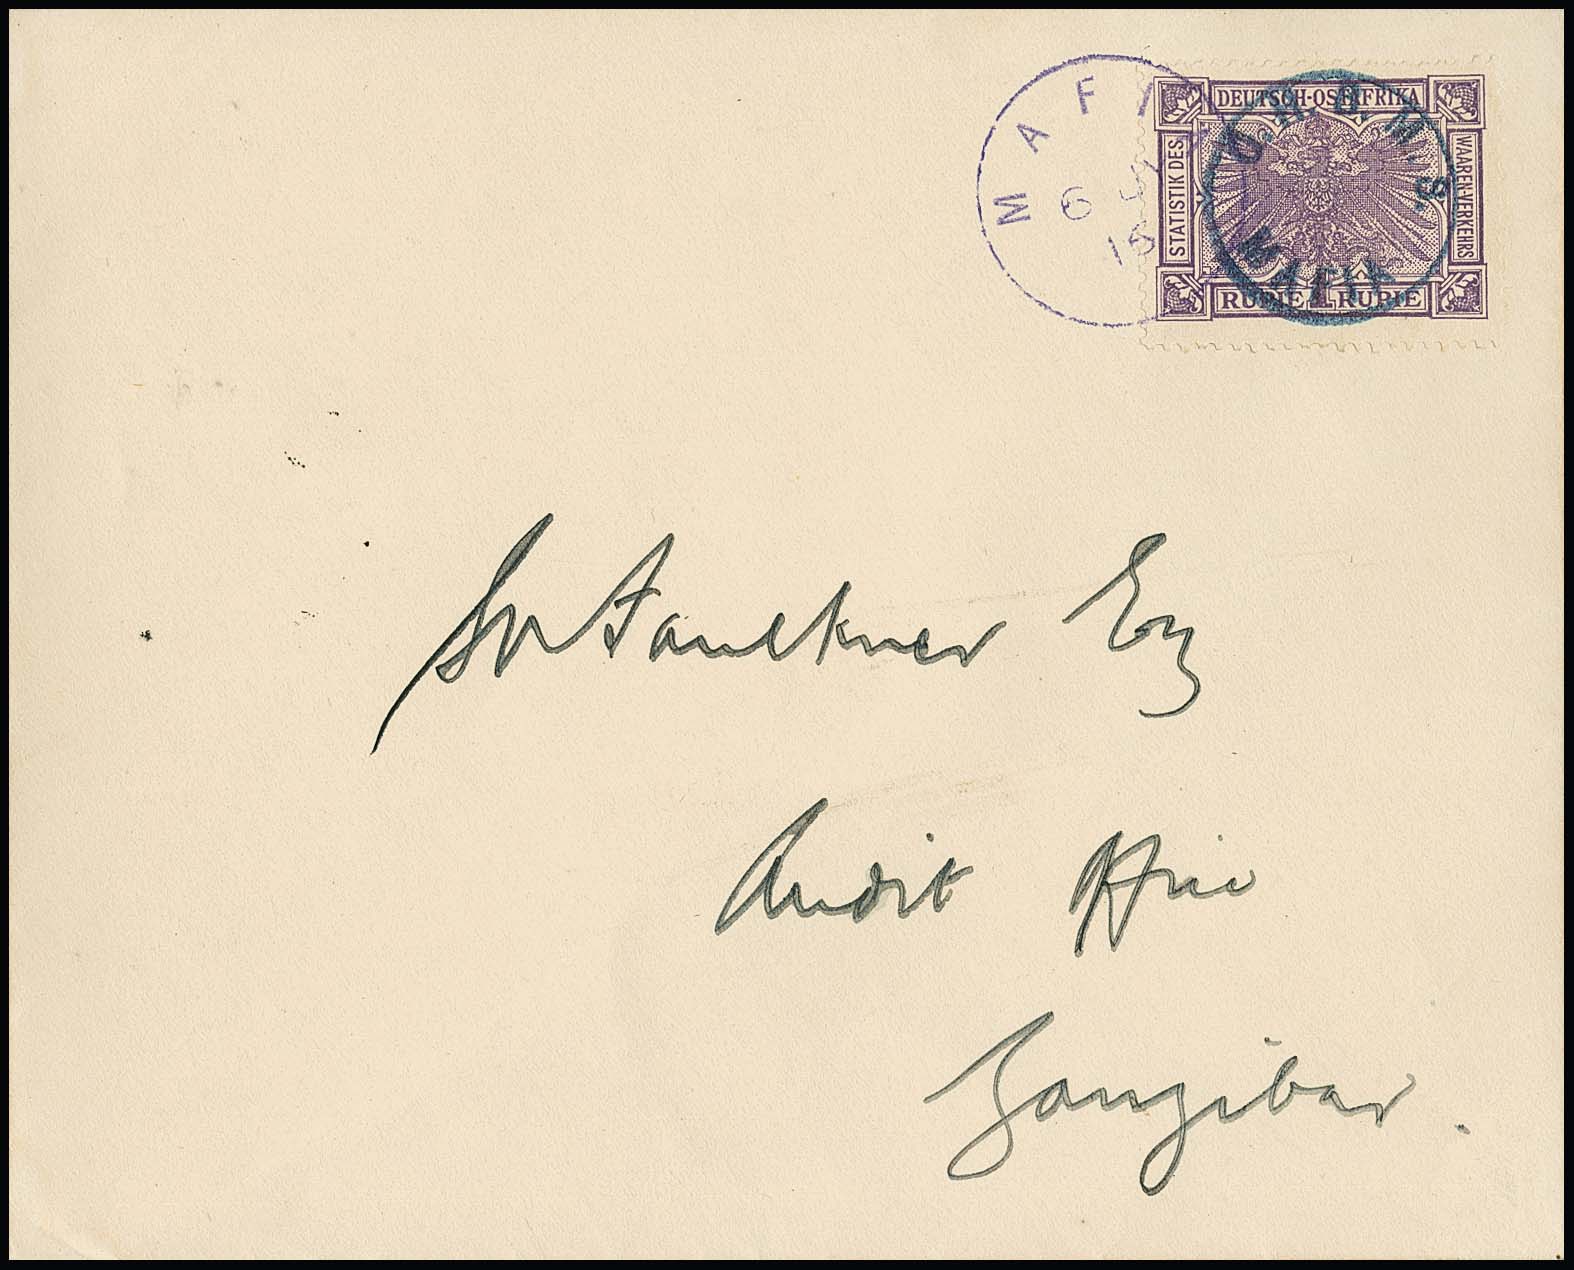 MAFI
6
15
DEUTSCH-OSTAFRIKA
STATISTIK DES
WAAREN-VERKEHRS
RUPIE 1 RUPIE
O.H.B.M.S.
MAFIA
Faulkner Esq
Audit Office
Zanzibar.